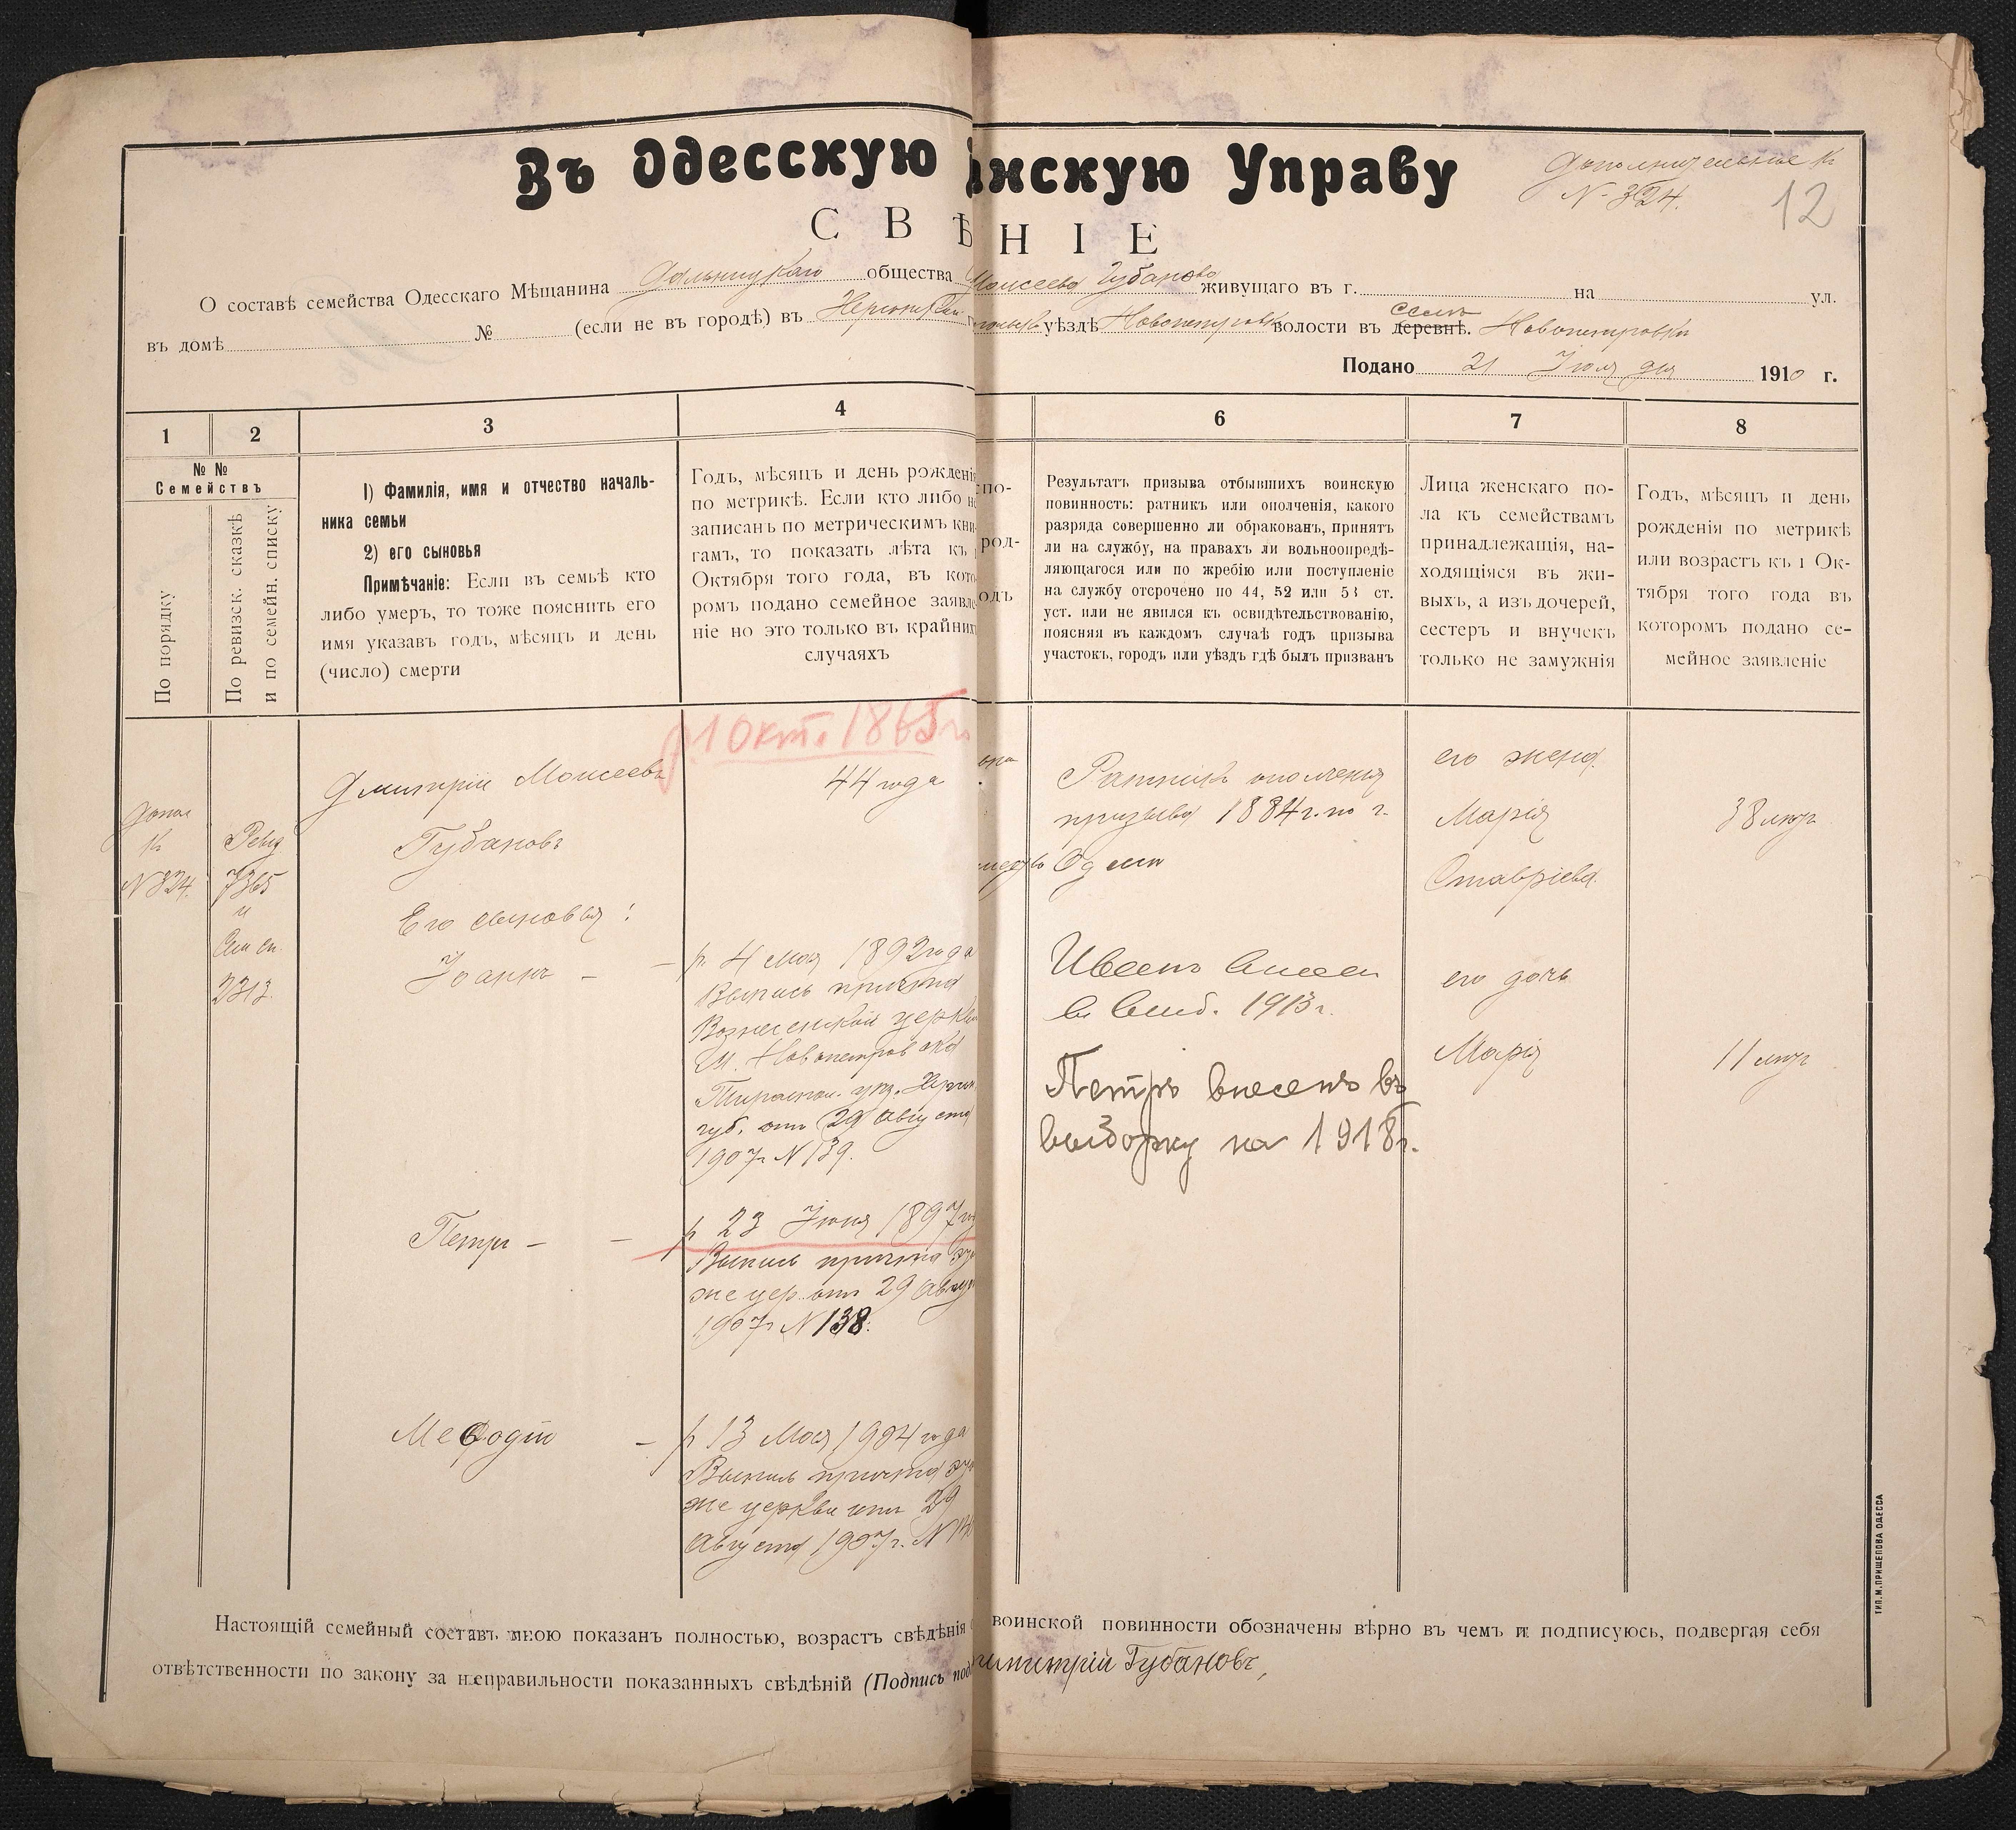 Въ Одесскую
нскую Управу
Дополнительное к
N 324.
12
С В Ѣ
Н І Е
О составѣ семейства Одесскаго Мѣщанина Дальницкаго общества
Моисеева Губанова живущаго въ г. на ул.
въ домѣ № (если не въ городѣ) въ Херсонской г.
уѣздѣ Новопетровск волости въ деревнѣ. селѣ Новопетровки
Подано 21 Іюля дня 1910 г.
1
2
3
4
6
7
8
№ №
Семействъ
По порядку
По ревизск. сказкѣ
и по семейн. списку
1) Фамилія, имя и отчество началь-
ника семьи
2) его сыновья
Примѣчаніе: Если въ семьѣ кто
либо умеръ, то тоже пояснить его
имя указавъ годъ, мѣсяцъ и день
(число) смерти
Годъ, мѣсяцъ и день рожденія
по метрикѣ. Если кто либо н
записанъ по метрическимъ кни-
гамъ, то показать лѣта къ 1
Октября того года, въ кото
ромъ подано семейное заявле
ніе но это только въ крайних
случаяхъ
по-
род-
одъ
Результатъ призыва отбывшихъ воинскую
повинность: ратникъ или ополченія, какого
разряда совершенно ли обракованъ, принятъ
ли на службу, на правахъ ли вольноопредѣ-
ляющагося или по жребію или поступленіе
на службу отсрочено по 44, 52 или 53 ст.
уст. или не явился къ освидѣтельствованію,
поясняя въ каждомъ случаѣ годъ призыва
участокъ, городъ или уѣздъ гдѣ былъ призванъ
Лица женскаго по-
ла къ семействамъ
принадлежащія, на-
ходящіяся въ жи-
выхъ, а изъ дочерей,
сестеръ и внучекъ
только не замужнія
Годъ, мѣсяцъ и день
рожденія по метрикѣ
или возрастъ къ 1 Ок-
тября того года въ
которомъ подано се-
мейное заявленіе
р. 1 Окт. 1865 г.
Допол
к
N 324.
Ревиз
7365
и
Сем сп.
2313.
Дмитрій Моисеевъ
Губановъ
44 года
Ратникъ ополченія
призыва 1884 г. по г.
Одессы
его жена
Марія
Ставріева
38 лѣтъ
Его сыновья:
Іоаннъ –
р. 4 Мая 1892 года
Выпись причта
Вознесенской церкви
м. Новопетровска
Тираспол. уѣз. Херсон.
губ. отъ 29 Августа
1907 г. N 139.
Ивеенъ внесен
в выб. 1913 г.
Петръ внесенъ въ
выборку на 1918 г.
его дочь
Марія
11 лѣтъ
Петръ –
р 23 Іюня 1897 го
Выпись причта
же цер. отъ 29 Авгус
1907 г. N 138.
Меѳодій –
р 13 Мая 1904 года
Выпись причта
же церкви отъ 29
Августа 1907 г. N
Настоящій семейный составъ мною показанъ полностью, возрастъ свѣдѣнія
воинской повинности обозначены вѣрно въ чемъ и подписуюсь, подвергая себя
отвѣтственности по закону за неправильности показанныхъ свѣдѣній (Подпись под
имитрій Губановъ,
ТИП. М. ПРИЩЕПОВА ОДЕССА